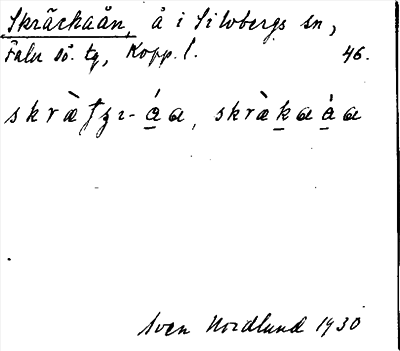 Skräckaån, å i Silvbergs sn,
Falu sö. tg, Kopp. l. 46.
skræ̀ʃʒɪ-áa, skræ̀kaàa
Sven Nordlund 1930